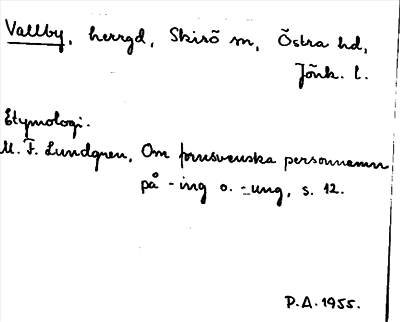 Vallby, herrgd, Skirö sn, Östra hd,
Jönk. l.
Etymologi.
M. F. Lundgren, Om fornsvenska personnamn
på -ing o. -ung, s. 12.
P.A. 1955.